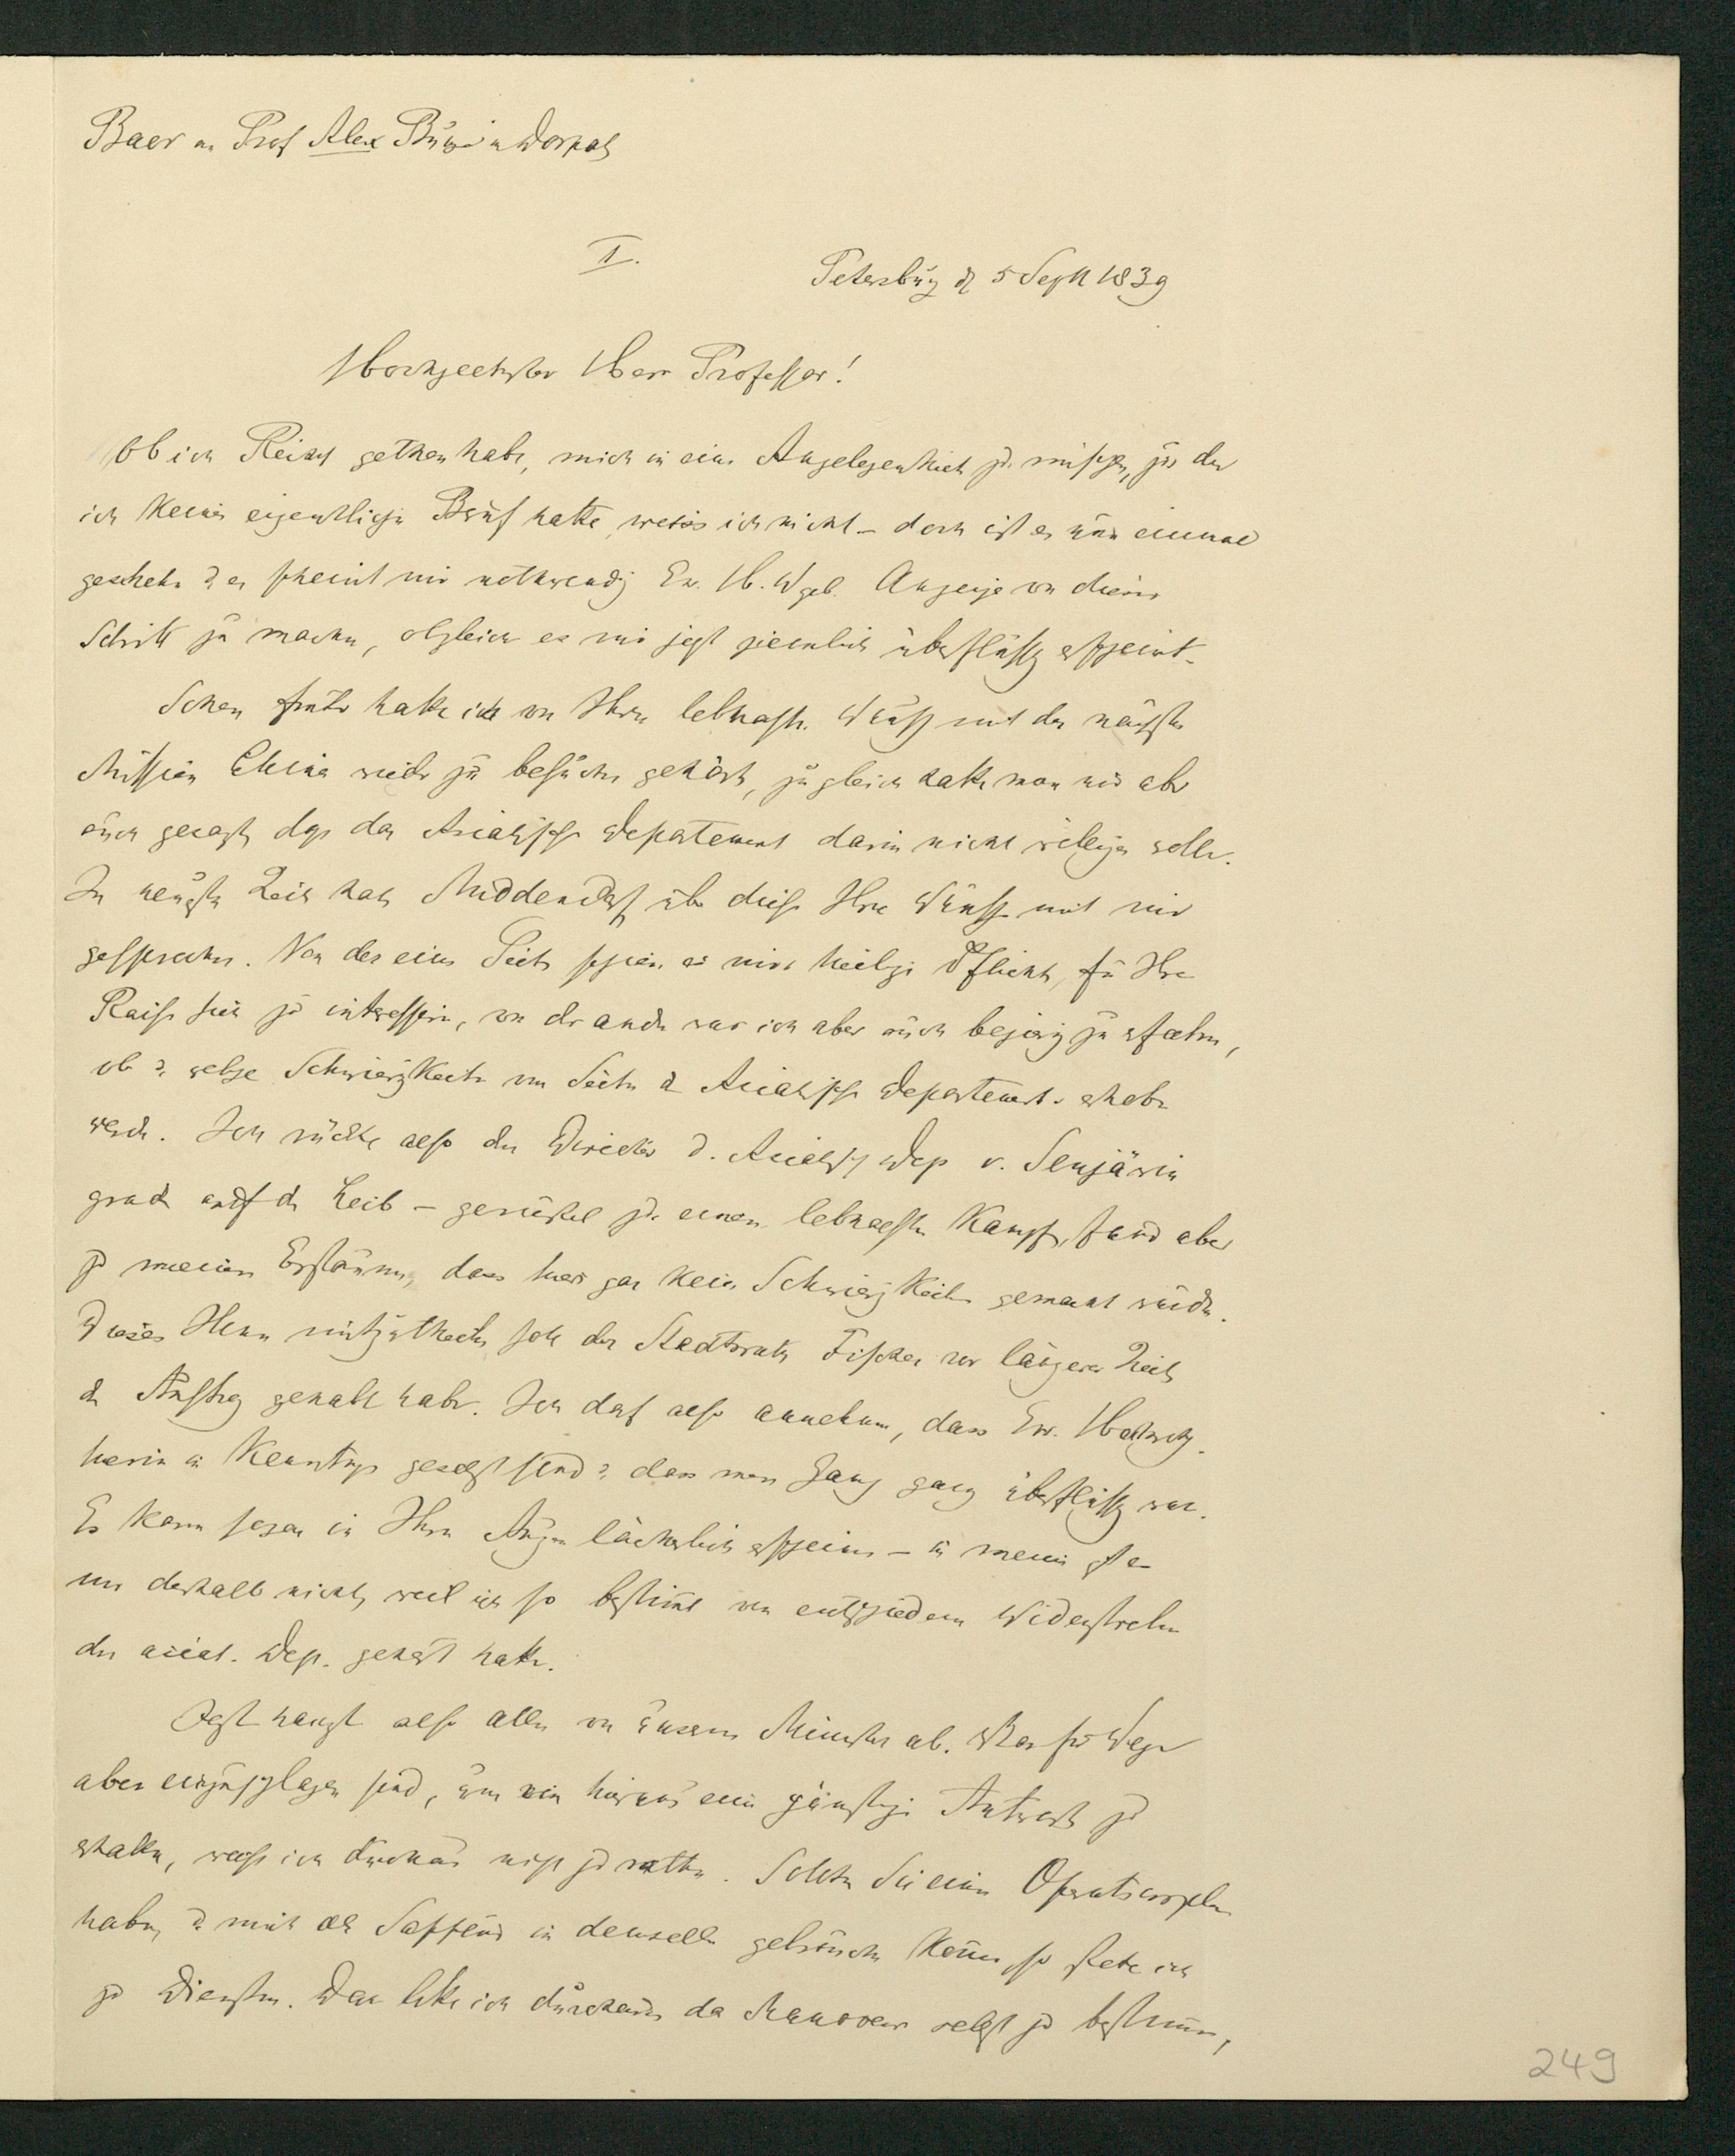 Baer an Prof Alex Bunge in Dorpat
I.
Petersburg d 5 Sept 1839
Hochgeehrter Herr Professor!
Ob ich Recht gethan habe, mich in eine Angelegenheit zu mischen, zu der
ich keinen eigentlichen Beruf hatte, weiss ich nicht – doch ist es nun einmal
geschehn u es scheint mir nothwendig Ew. H. Wgeb. Anzeige von diesem
Schritt zu machen, obgleich es mir jetzt ziemlich überflüssig erscheint.
Schon früher hatte ich von Ihrem lebhaften Wunsch mit der nächsten
Mission China wieder zu besuchen gehört, zugleich hatte man mir aber
auch gesagt dass das Asiatische Departement darin nicht willigen wolle.
In neuester Zeit hat Middendorff über diesen Ihren Wunsch mit mir
gesprochen. Von der einen Seite schien es mir heilige Pflicht, für Ihre
Reise sich zu interessiren, von der andern war ich aber auch begierig zu erfahren,
ob u. welche Schwierigkeiten von Seiten d Asiatischen Departements erhoben
werden. Ich rückte also dem Director d. Asiatisch Dep v. Senjäwin
grade auf den Leib – gerüstet zu einem lebhaften Kampf, fand aber
zu meinem Erstaunen, dass hier gar keine Schwierigkeiten gemacht würden.
Dieses Ihnen mitzutheilen solle der Staatsrath Fischer vor längerer Zeit
den Auftrag gehabt haben. Ich darf also annehmen, dass Ew. Hochwg.
hievon in Kenntniss gesetzt sind u. dass mein Gang ganz überflüssig war.
Er kann sogar in Ihren Augen lächerlich erscheinen – in meinen ist er
nur deshalb nicht, weil ich so bestimmt von entschiedenem Widerstreben
des asiat. Dep. gehört hatte.
Jetzt hängt also alles von unserm Minister ab. Was für Wege
aber einzuschlagen sind, um von hieraus eine günstige Antwort zu
erhalten, weiss ich durchaus nicht zu rathen. Sollten Sie einen Operationsplan
haben, u. mich als Sappeur in demselben gebrauchen können, so stehe ich
zu Diensten. Doch bitte ich durchaus das Manöver selbst zu bestimmen,
249